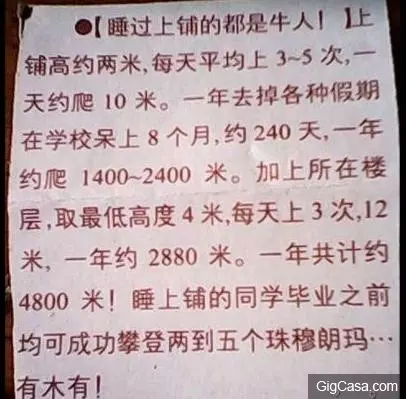 ●【睡过上铺的都是牛人！】上
铺高约两米,每天平均上 3~5 次,一
天约爬 10 米。一年去掉各种假期
在学校呆上 8 个月,约 240 天,一年
约爬 1400~2400 米。加上所在楼
层,取最低高度 4 米,每天上 3 次,12
米, 一年约 2880 米。一年共计约
4800 米！睡上铺的同学毕业之前
均可成功攀登两到五个珠穆朗玛…
有木有!
GigCasa.com